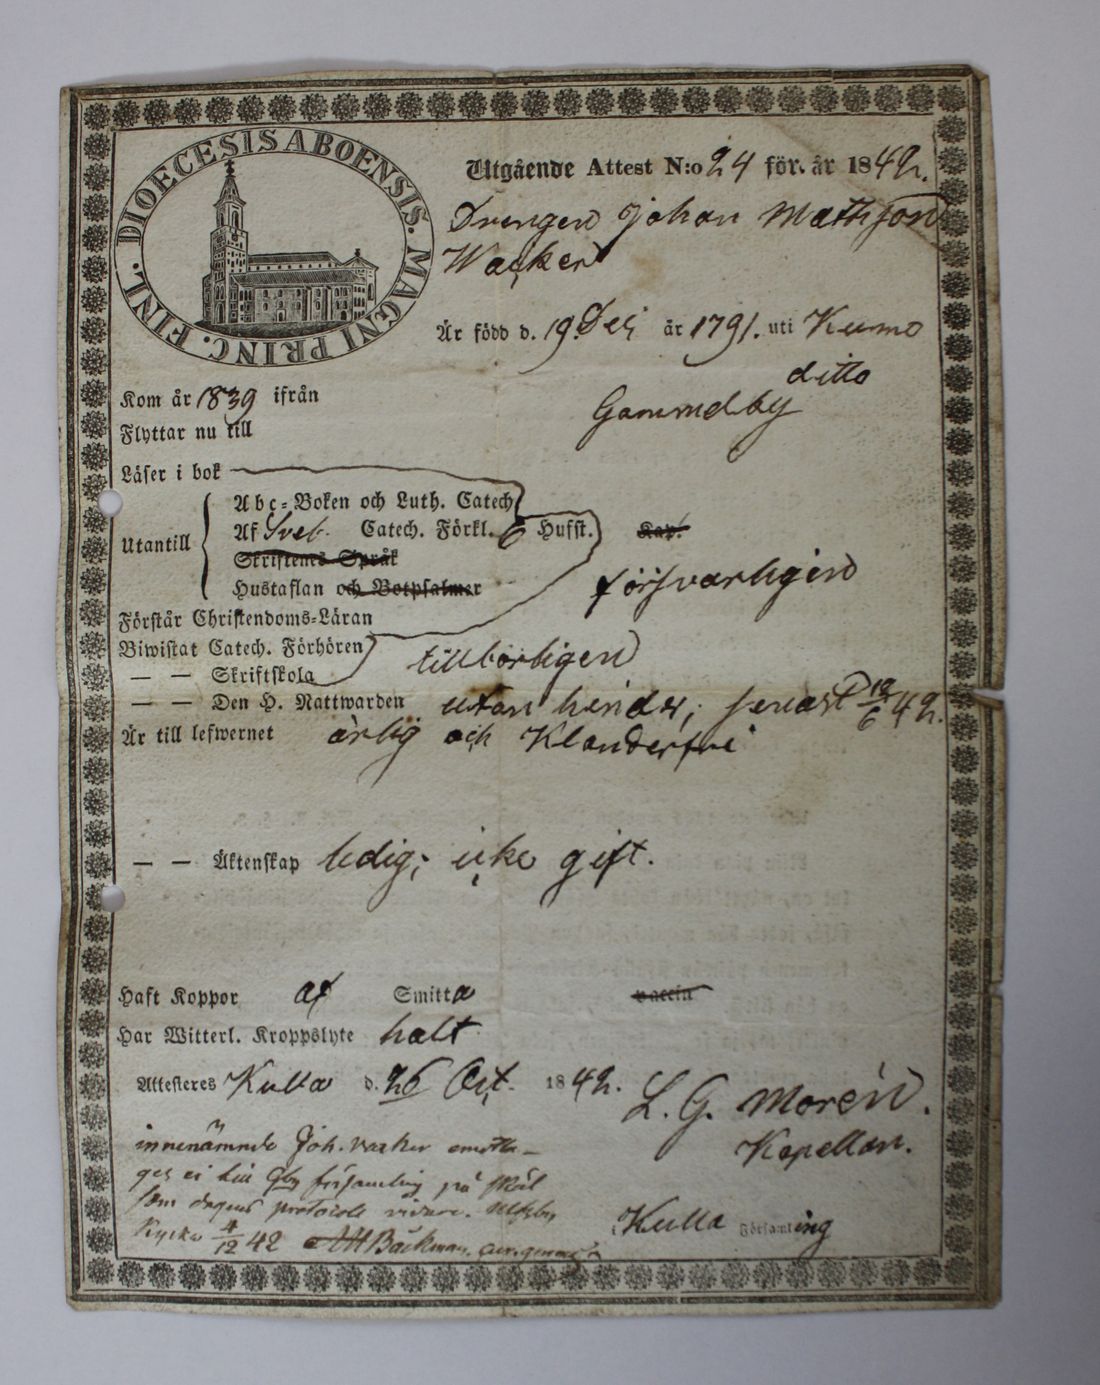 DIOECESIS ABOENSIS. MAGNI PRINC. FINL.
Utgående Attest N:o 24 för. år 1842.
Drengen Johan Mathsson
Wacker
Är född d. 19 Dec. år 1791. uti Kumo
ditto
Kom år 1839 ifrån
Gammelby
Flyttar nu till
Läser i bok
Abc-Boken och Luth. Catech.
Utantill Af Sveb. Catech. Förkl. 6 Hufst. Kap.
Skriftenes Språk
Hustaflan och Botpsalmer försvarligen
Förstår Christendoms-Läran
Biwistat Catech. Förhören
— — Skriftskola tillbörligen
— — Den H. Nattwarden utan hinder, senast 12/6 42.
Är till lefwernet ärlig och Klanderfri
— — Äktenskap ledig; icke gift.
Haft Koppor af Smitta vaccin
Har Witterl. Kroppslyte halt
Attesteres Kulla d. 26 Oct. 1842. L. G. Morén.
Kapellan.
innenämnde Joh. Wacker emotta-
ges ei till församling på skäl
som dagens protocoll vidare. Ulfsby
Kyrka 4/12 42 Backman.
Kulla Församling